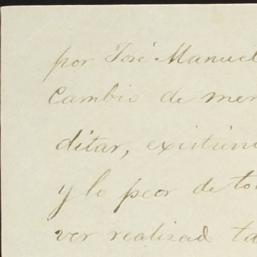 por José Manuel
Cambio de mer
ditar, existien
y lo peor de to
ver realisad ta